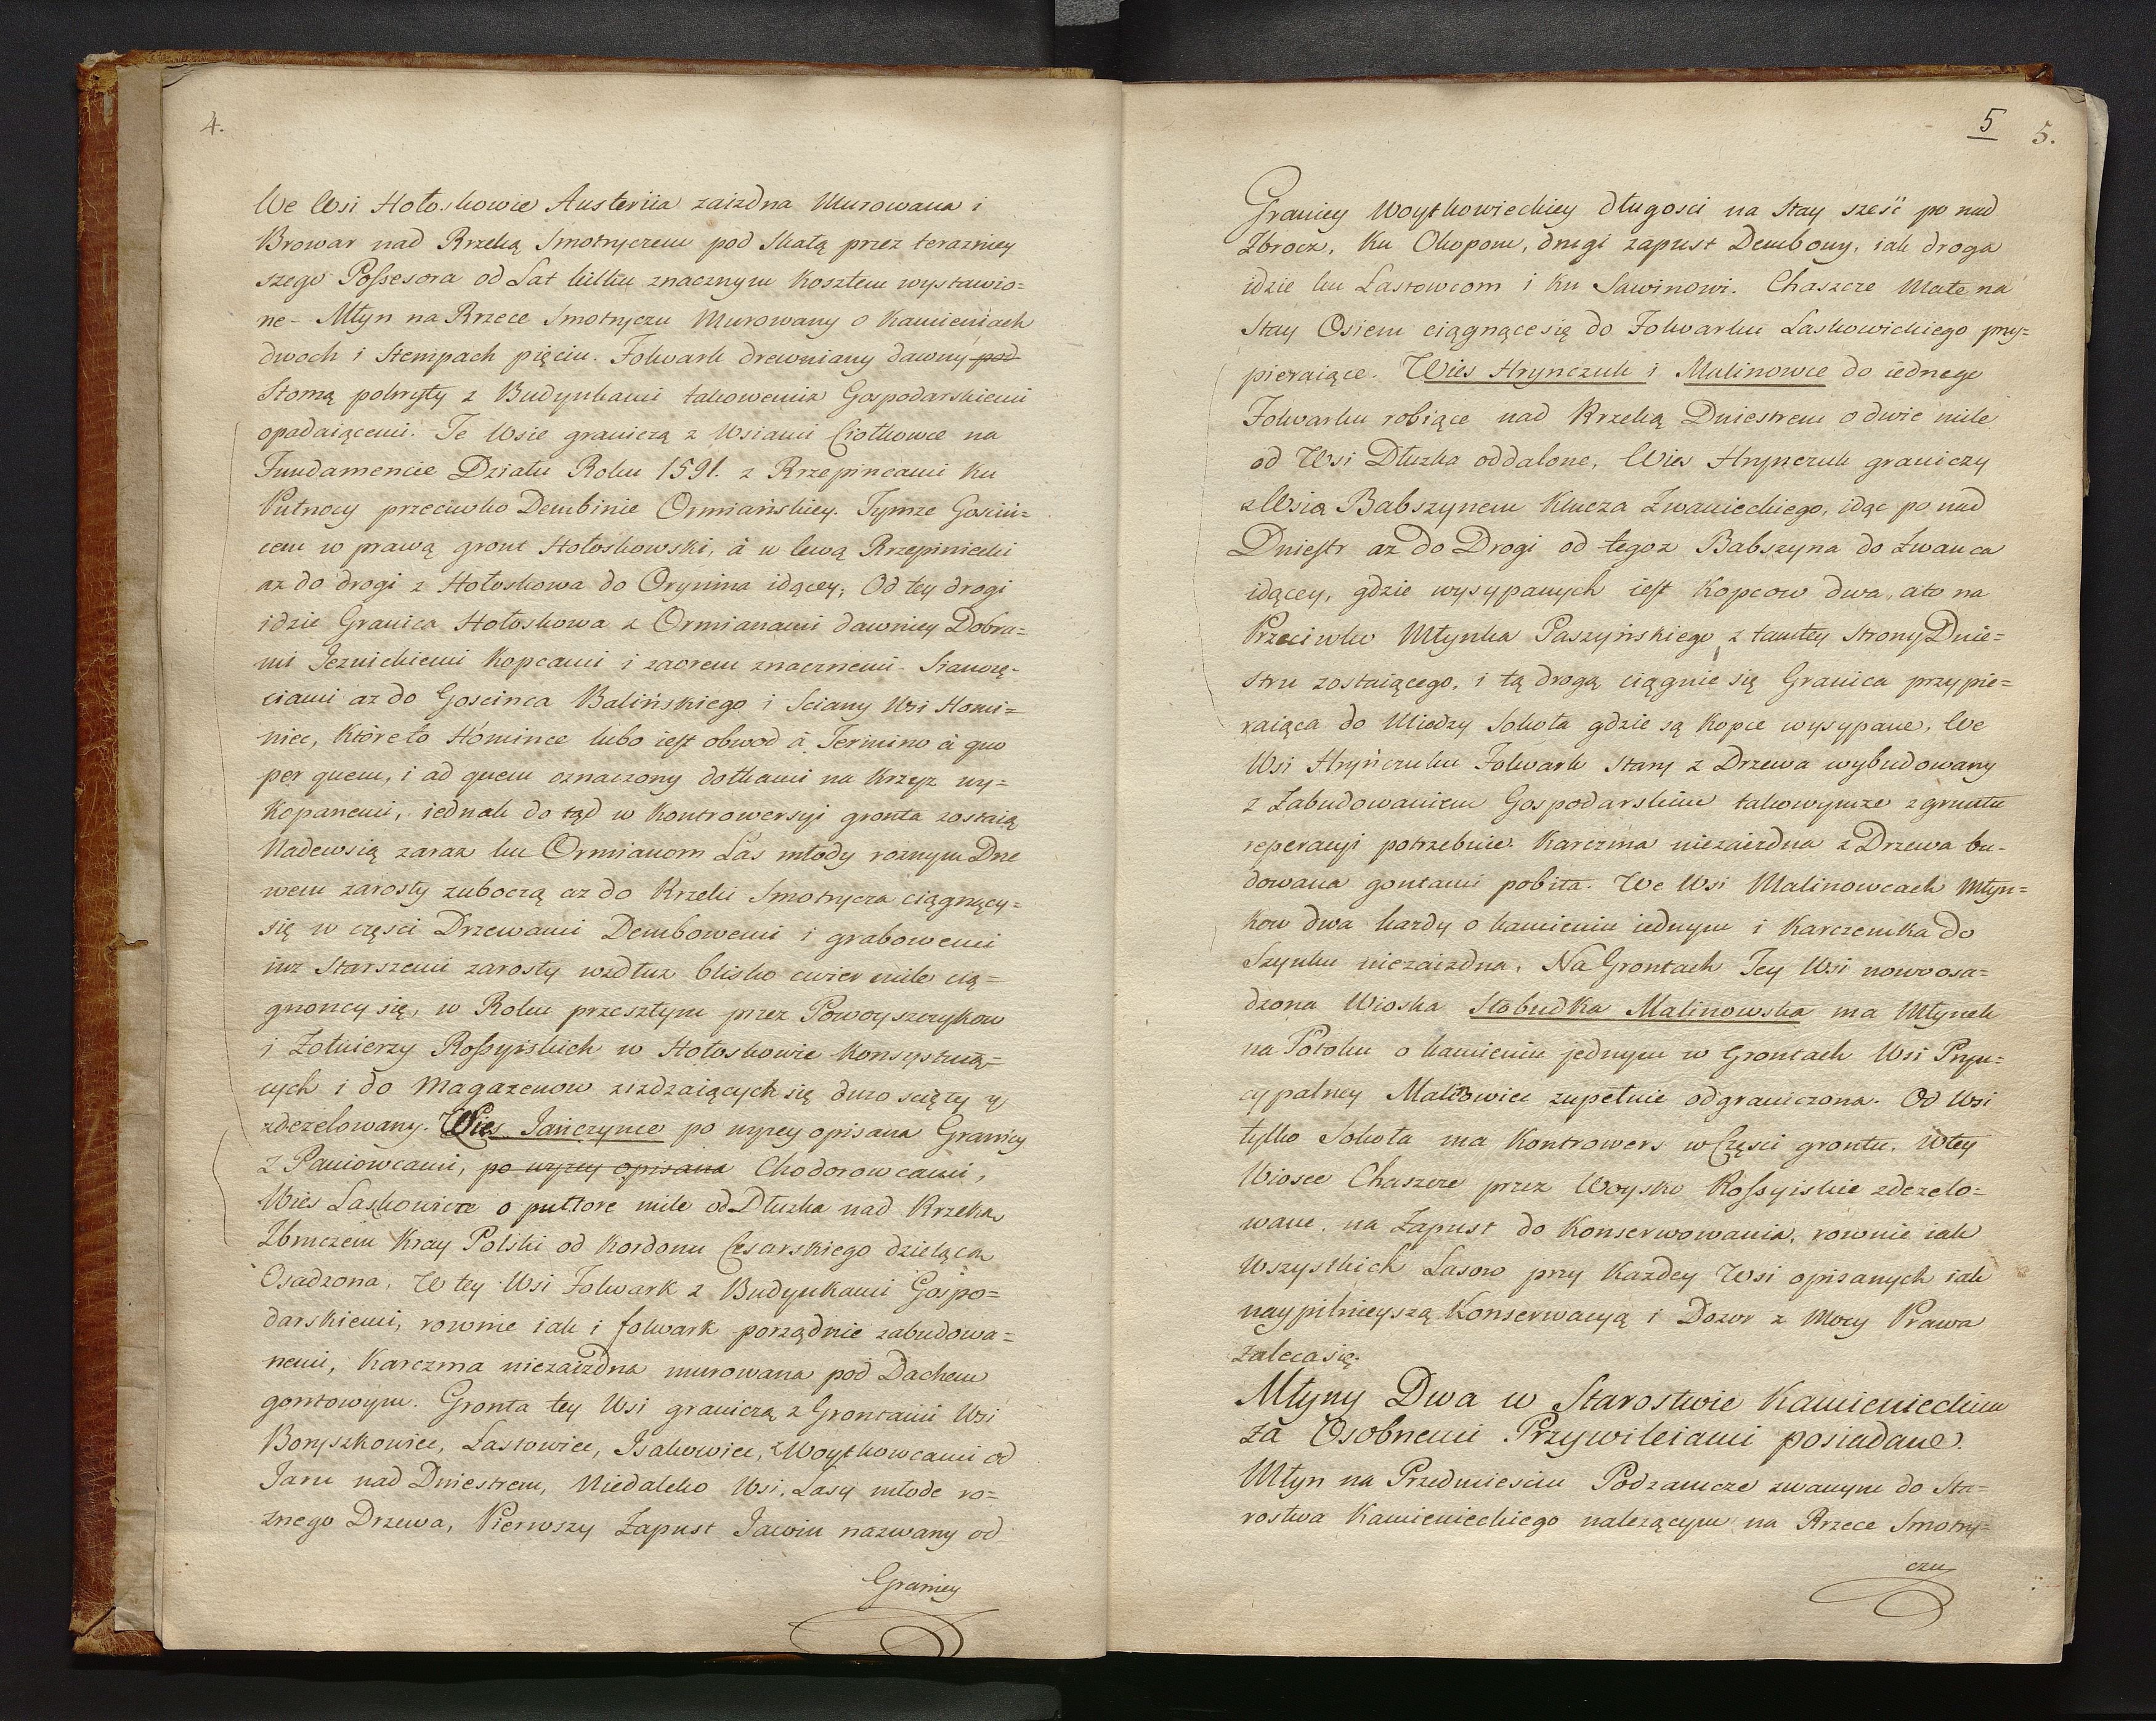 4.
We Wsi Hołoskowie Austeriia zaizdna Murowana i
Browar nad Rzeką Smotryczem pod Skałą przez terazniey
szego Possesora od Lat kilku znacznym Kosztem wystawio=
ne – Młyn na Rzece Smotryczu Murowany o Kamieniach
dwoch i Stempach pięciu. Folwark drewniany dawny pod
Słomą pokryty z Budynkami takowemiz Gospodarskiemi
opadaiącemi. Te Wsie graniczą z Wsiami Ciotkowce na
Fundamencie Działu Roku 1591. z Rzepincami Ku
Pułnocy przeciwko Dembinie Ormiańskiey. Tymze Gosciń=
cem w prawą gront Hołoskowski, à w lewą Rzepiniecki
az do drogi z Hołoskowa do Orynina idącey, Od tey drogi
idzie Granica Hołoskowa z Ormianami dawniey Dobra=
mi Jezuickiemi Kopcami i zaorem znacznemi – Sianożę=
ciami az do Goscinca Balińskiego i Sciany Wsi Homi=
niec, Które to Homince lubo iest obwod à Termino à quo
per quem, i ad quem oznaczony dołkami na Krzyz wy=
Kopanemi, iednak do tąd w Kontrowersyi gronta zostaią
Nadewsią zaraz ku Ormianom Las młody roznym Drze
wem zarosły zuboczą az do Rzeki Smotrycza ciągnący=
się w częsci Drzewami Dembowemi i grabowemi
iuz Starszemi zarosły wzdłuz blisko cwierc mile cią=
gnoncy się, w Roku przeszłym przez Powoyszczykow
i Zołnierzy Rossyiskich w Hołoskowie Konsystuią=
cych i do Magazenow ziezdzaiących się duzo scięty y
zdezelowany. Wies Jańczynce po wyzey opisana Graniczy
z Paniowcami, po wyzey opisana Chodorowcami,
Wies Laskowica o pułtore mile od Dłuzka nad Rzeką
Zbruczem Kray Polski od Kordonu Cesarskiego dzielącą
Osadzona. W tey Wsi Folwark z Budynkami Gospo=
darskiemi, rownie iak i folwark porządnie zabudowa=
nemi, Karczma niezaizdna murowana pod Dachem
gontowym. Gronta tey Wsi graniczą z Grontami Wsi
Boryszkowiec, Lastowiec, Isakowiec, z Woytkowcami od
Jaru nad Dniestrem, Niedaleko Wsi, Lasy młode ro=
znego Drzewa, Pierwszy Zapust Jawin nazwany od
Granicy
5
5.
Granicy Woytkowieckiey długosci na Stay szesć po nad
Zbrocz, Ku Okopom, drugi zapust Dembowy, iak droga
idzie ku Lastowcom i Ku Sawinowi. Chaszcze Małe na
Stay Osiem ciągnące się do Folwarku Laskowickiego przy=
pieraiące. Wies Hrynczuk i Malinowce do iednego
Folwarku robiące nad Rzeką Dniestrem o dwie mile
od Wsi Dłuzka oddalone, Wies Hrynczuk graniczy
z Wsią Babszynem Klucza Zwanieckiego, idąc po nad
Dniestr az do Drogi od tegoz Babszyna do Zwanca
idącey, gdzie wysypanych iest Kopcow dwa, a to na
Przeciwko Młynka Paszyńskiego z tamtey Strony Dnie=
stru zostaiącego, i tą drogą ciągnie się Granica przypie=
raiąca do Miedzy Sokoła gdzie są Kopce wysypane, We
Wsi Hryńczuku Folwark Stary z Drzewa wybudowany
z Zabudowaniem Gospodarskim takowymze z gruntu
reperacyi potrzebnie. Karczma niezaizdna z Drzewa bu=
dowana gontami pobita. We Wsi Malinowcach Młyn=
kow dwa kazdy o kamieniu iednym i Karczemka do
Szynku niezaizdna. Na Grontach Tey Wsi nowo osa=
dzona Wioska Słobudka Malinowska ma Młynek
na Potoku o kamieniu jednym w Grontach Wsi Pryn=
cypalney Malinowiec zupełnie odgraniczona. Od Wsi
tylko Sokoła ma Kontrowers w Częsci grontu. W tey
Wiosce Chaszcze przez Woysko Rossyiskie zdezelo=
wane, na Zapust do Konserwowania, rownie iak
Wszystkich Lasow przy Kazdey Wsi opisanych iak
naypilnieyszą Konserwacyą i Dozor z Mocy Prawa
Zaleca się.
Młyny Dwa w Starostwie Kamienieckim
Za Osobnemi Przywileiami posiadane.
Młyn na Przedmiesciu Podzamcze zwanym do Sta=
rostwa Kamienieckiego nalezącym na Rzece Smotry=
czu